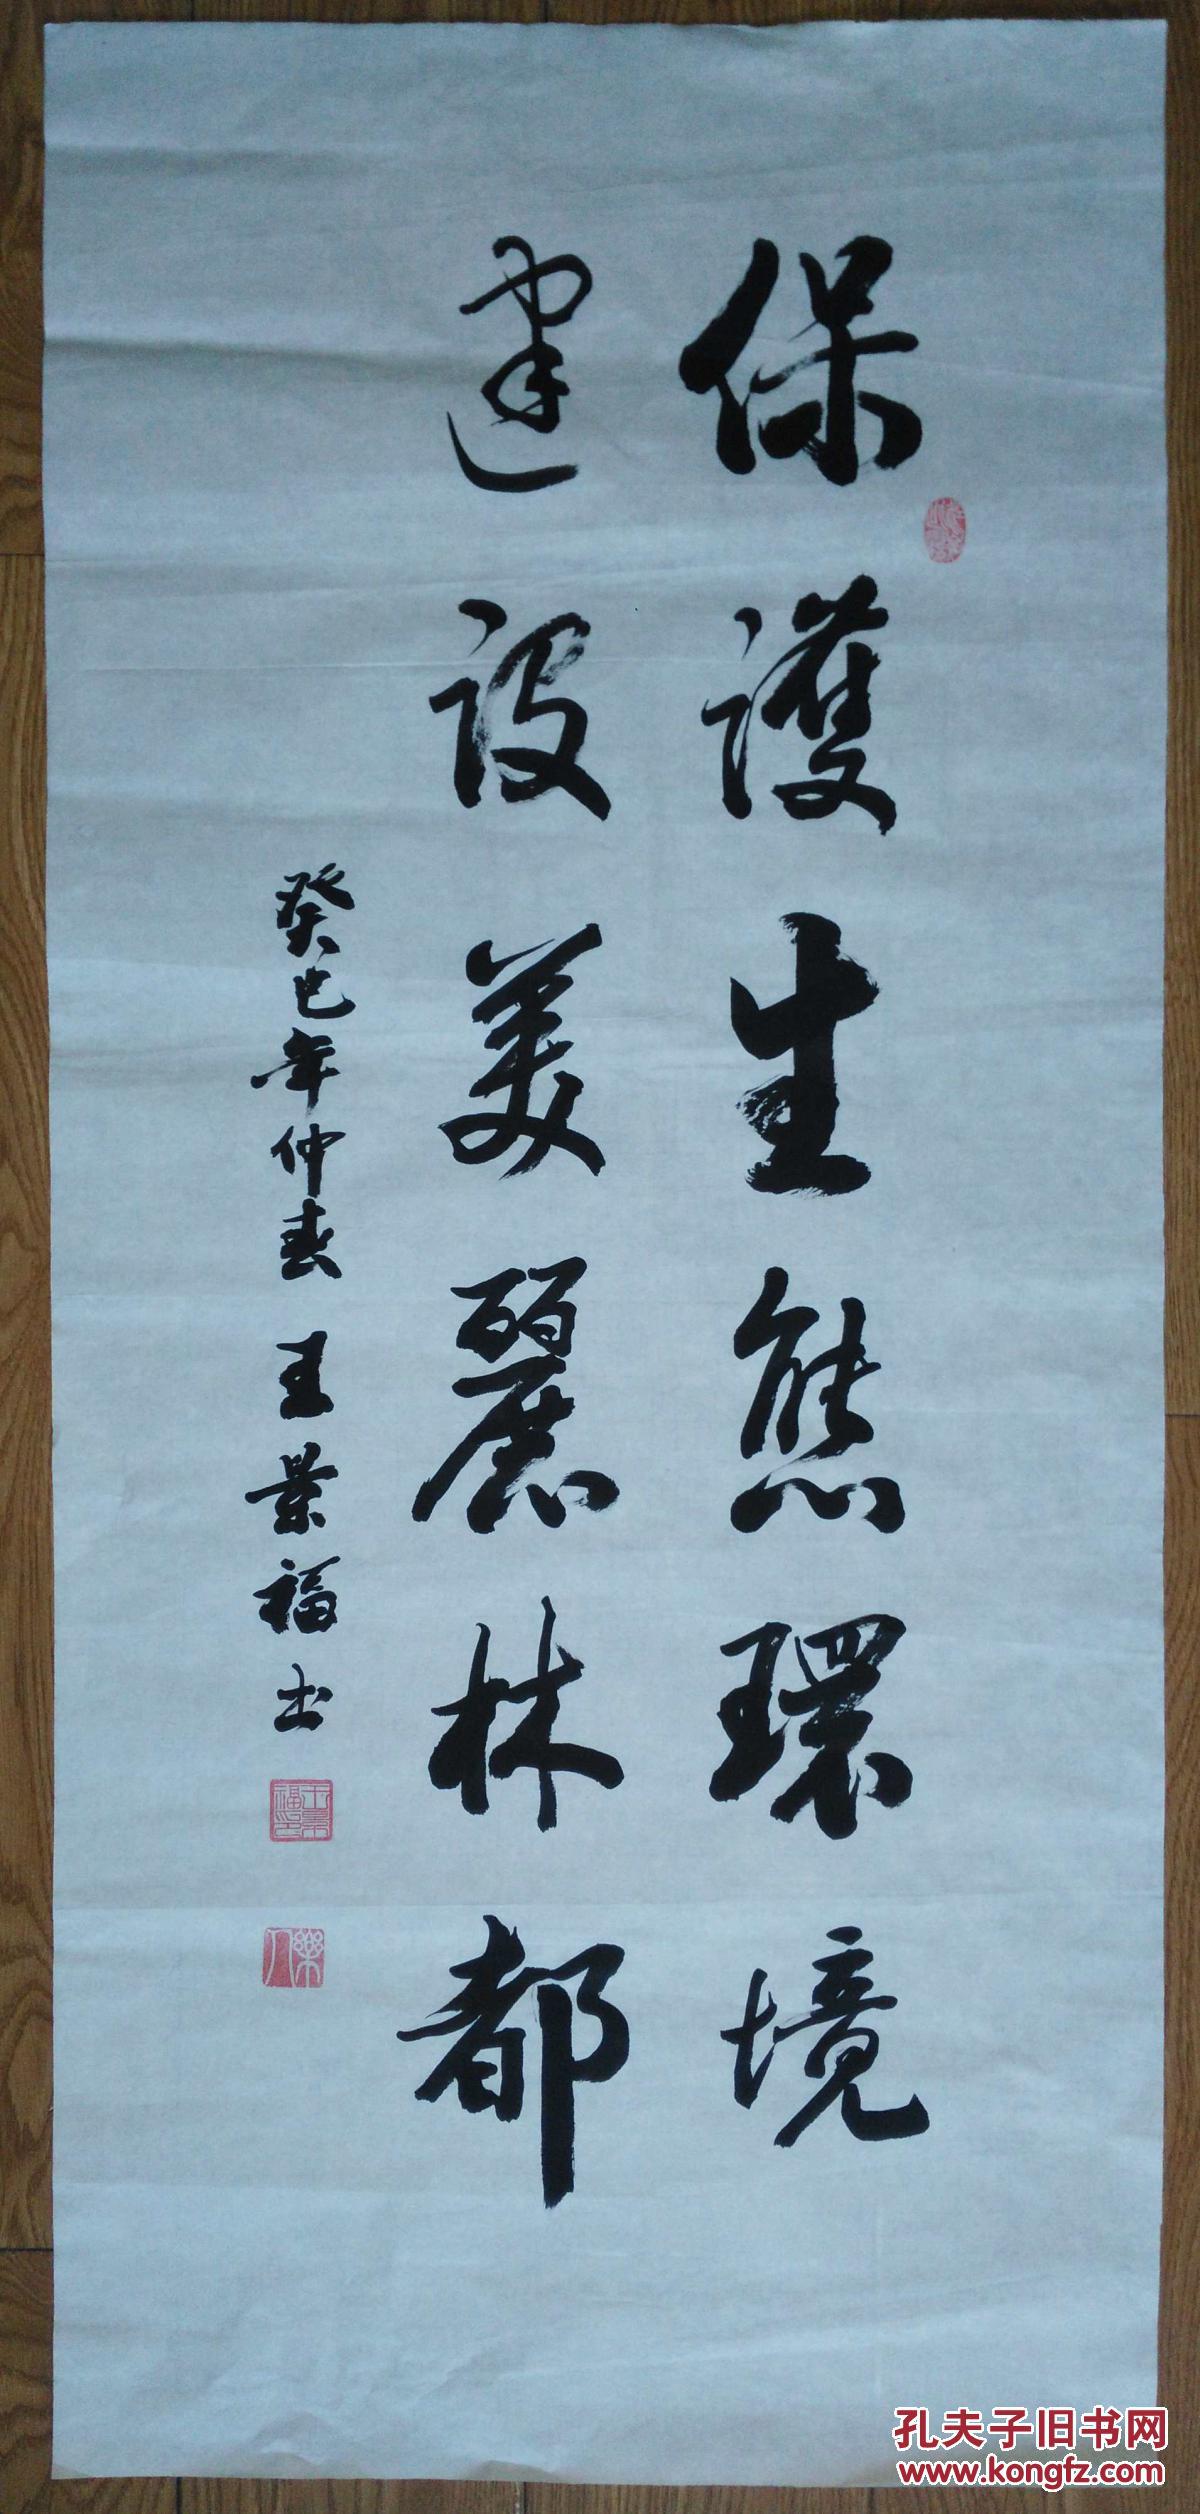 保護生態環境
建设美麗林都
癸巳年仲春 王景福书
王景福印
樂人
孔夫子旧书网
www.kongfz.com